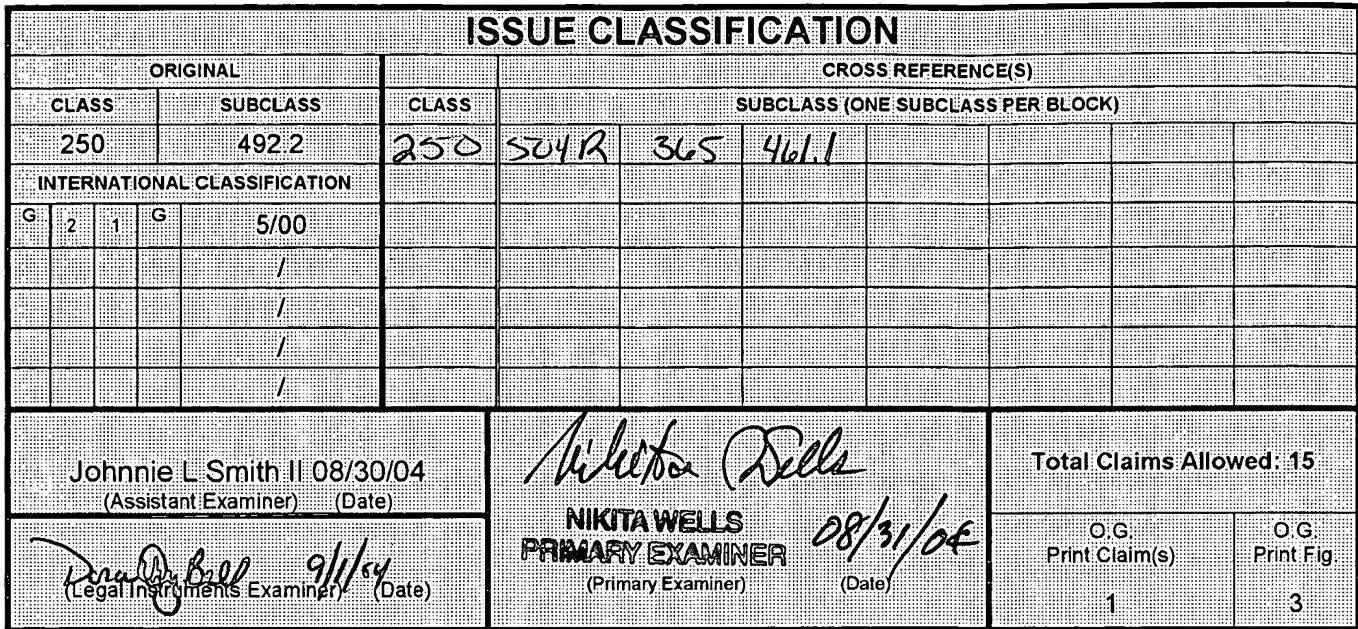 ISSUE CLASSIFICATION
ORIGINAL CROSS REFERENCE(S)
CLASS SUBCLASS CLASS SUBCLASS (ONE SUBCLASS PER BLOCK)
250 492.2 250 504R 365 461.1
INTERNATIONAL CLASSIFICATION
G 2 1 G 5/00
/
/
/
/
Johnnie L Smith II 08/30/04
(Assistant Examiner) (Date)
9/1/04
(Legal Instruments Examiner) (Date)
Nikita Wells
NIKITA WELLS
PRIMARY EXAMINER 08/31/04
(Primary Examiner) (Date)
Total Claims Allowed: 15
O.G.
Print Claim(s)
1
O.G.
Print Fig.
3